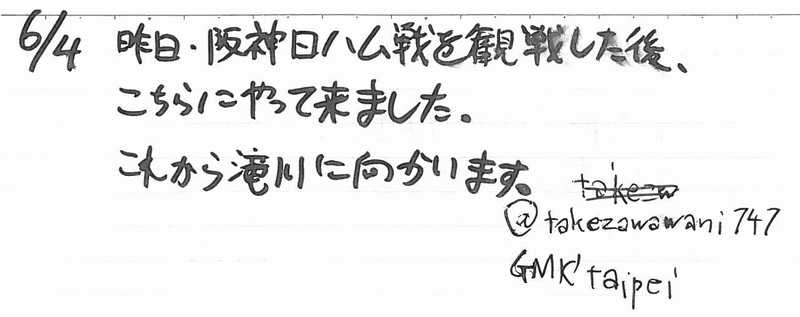 6/4 昨日・阪神日ハム戦を観戦した後、
こちらにやって来ました。
これから滝川に向かいます。
takezw
@takezawawani747
GMK'taipei